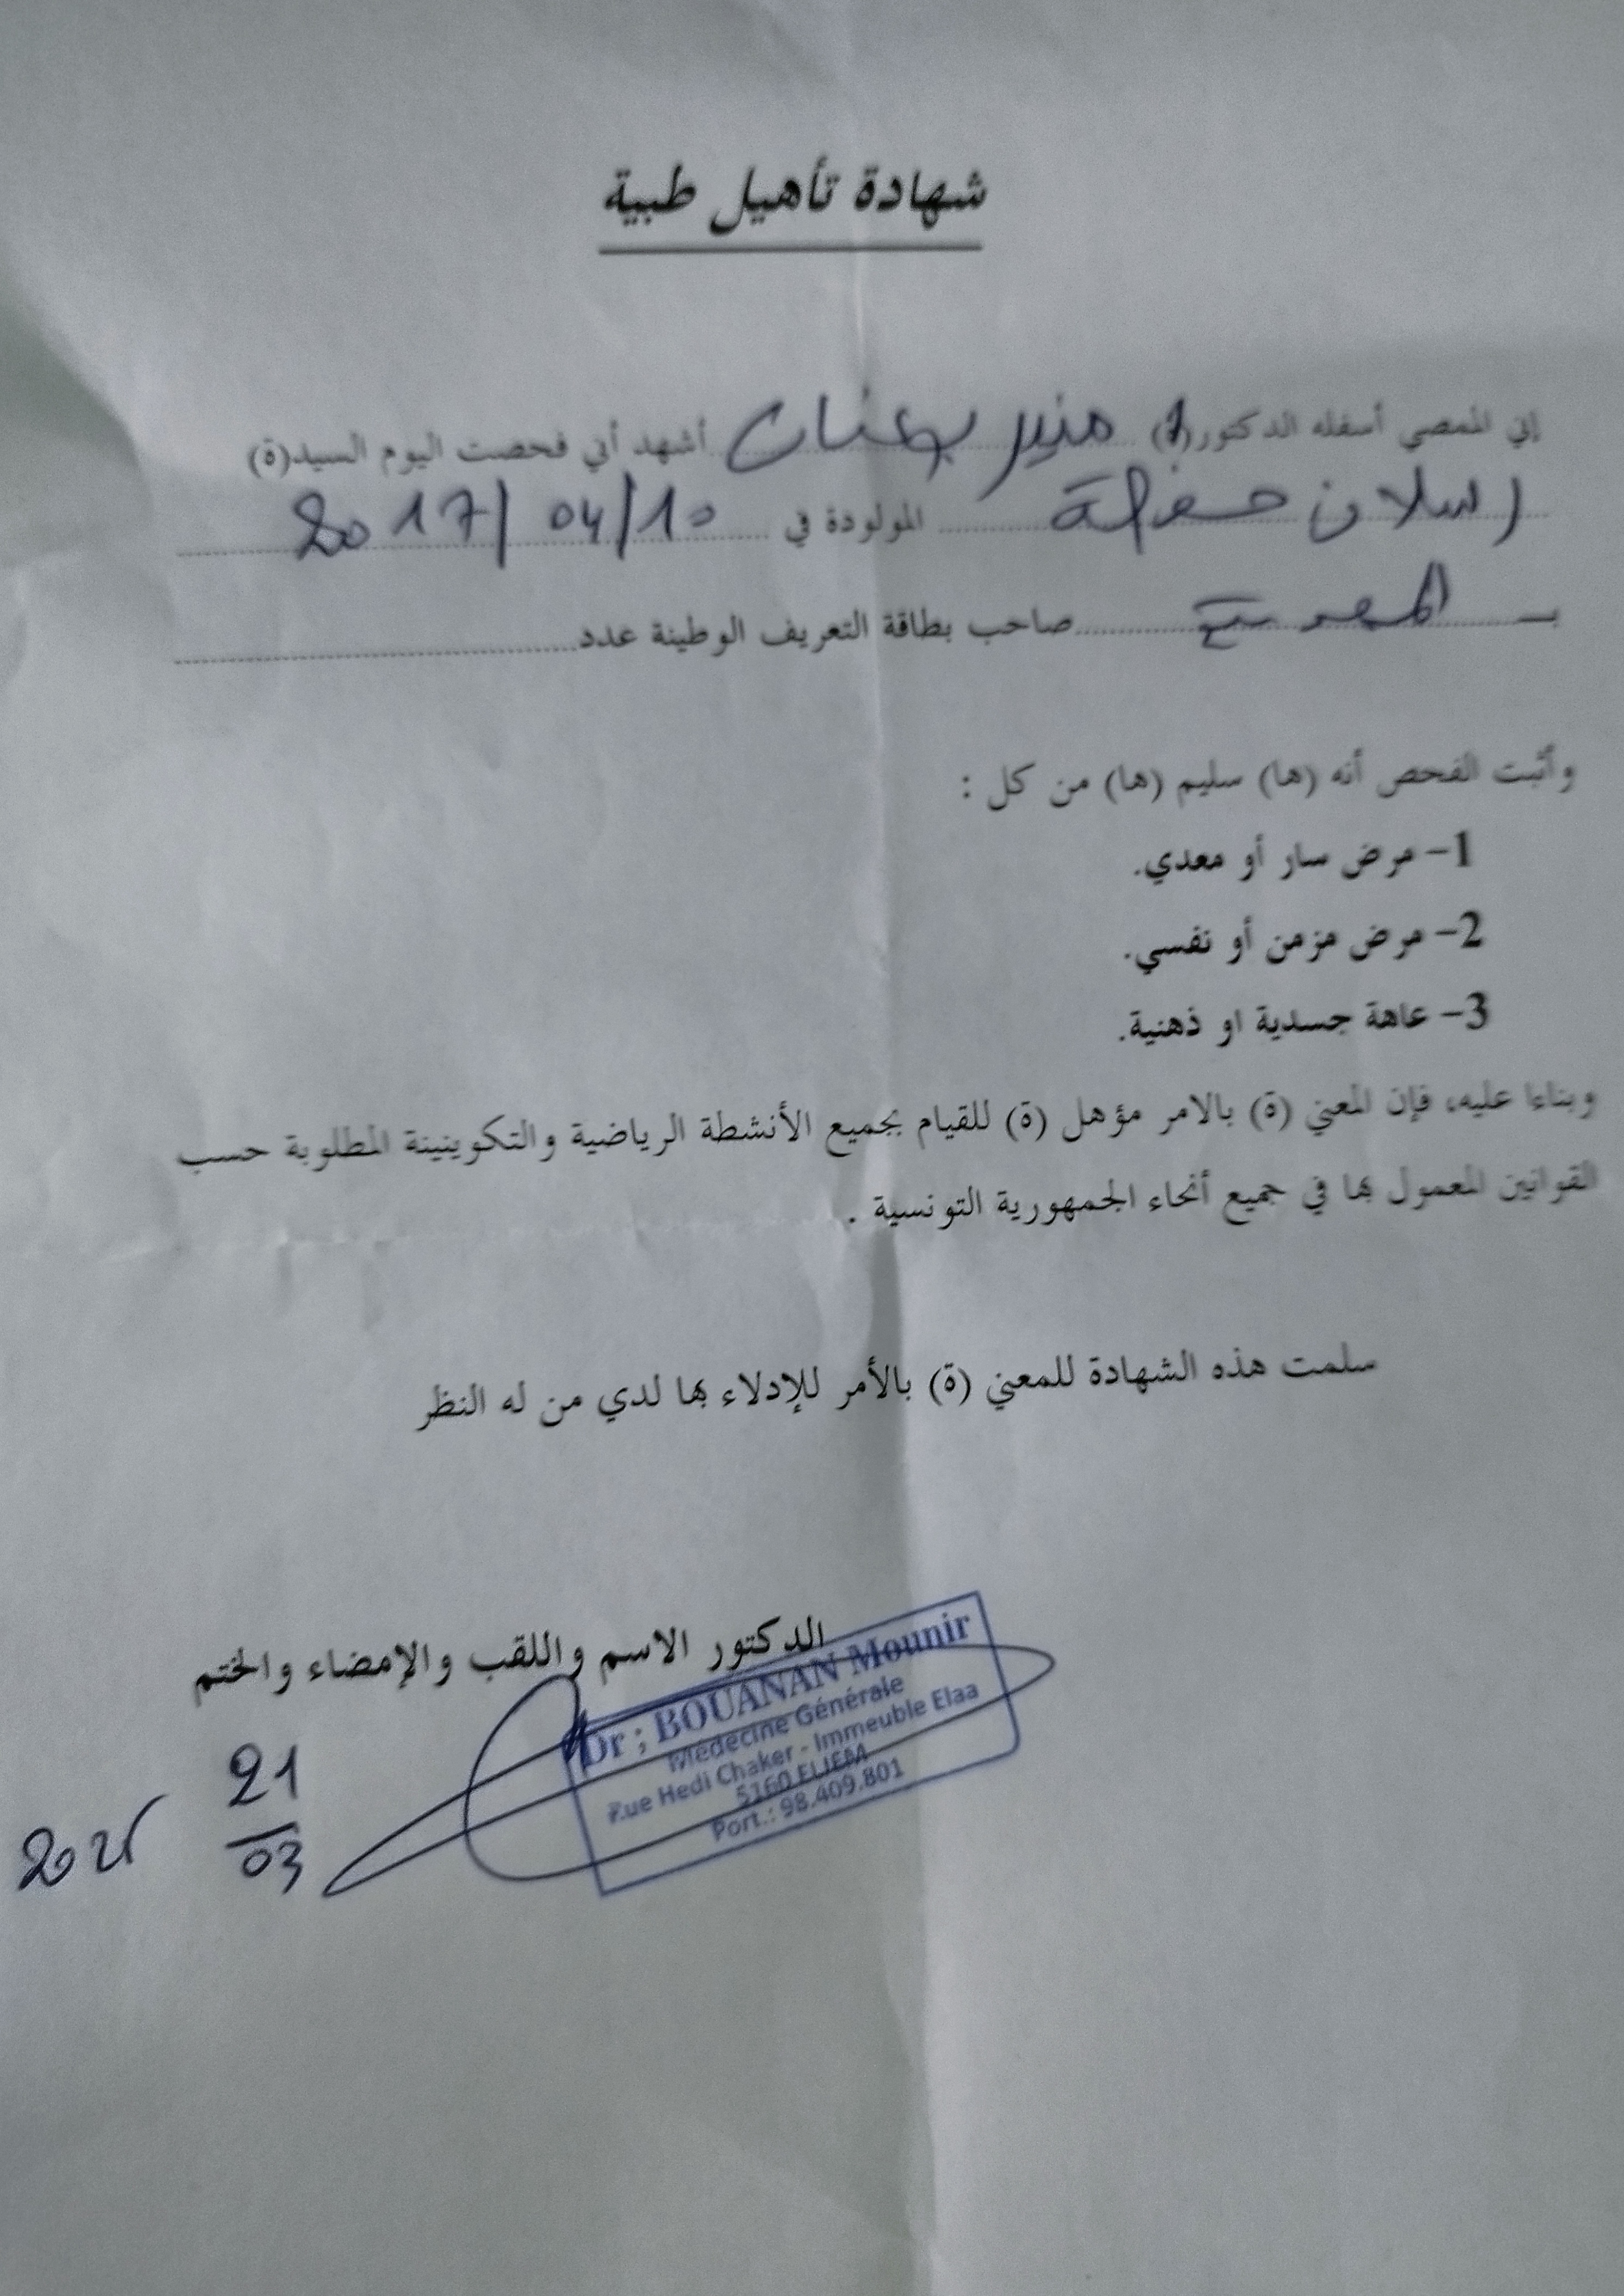 شهادة تأهيل طبية
إني الممصي أسفله الدكتور(ة) منير بوعنان أشهد أني فحصت اليوم السيد(ة)
رسلان المولودة في 2017/04/10
بـ صاحب بطاقة التعريف الوطينة عدد
وأثبت الفحص أنه (ها) سليم (ها) من كل :
1- مرض سار أو معدي.
2- مرض مزمن أو نفسي.
3- عاهة جسدية او ذهنية.
وبناءا عليه، فإن المعني (ة) بالامر مؤهل (ة) للقيام بجميع الأنشطة الرياضية والتكوينينة المطلوبة حسب
القوانين المعمول بها في جميع أنحاء الجمهورية التونسية .
سلمت هذه الشهادة للمعني (ة) بالأمر للإدلاء بها لدي من له النظر
الدكتور الاسم واللقب والإمضاء والختم
Dr ; BOUANAN Mounir
Médecine Générale
Rue Hedi Chaker - Immeuble Elaa
5160 ELJEM
Port.: 98.409.801
21
03